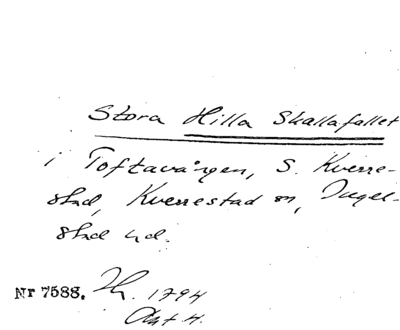 Stora Hilla Skallafallet
i Toftavången, S. Kverre-
stad, Kverrestad sn, Ingel-
stad hd.
Nr 7588. Lh. 1794
Akt 4.